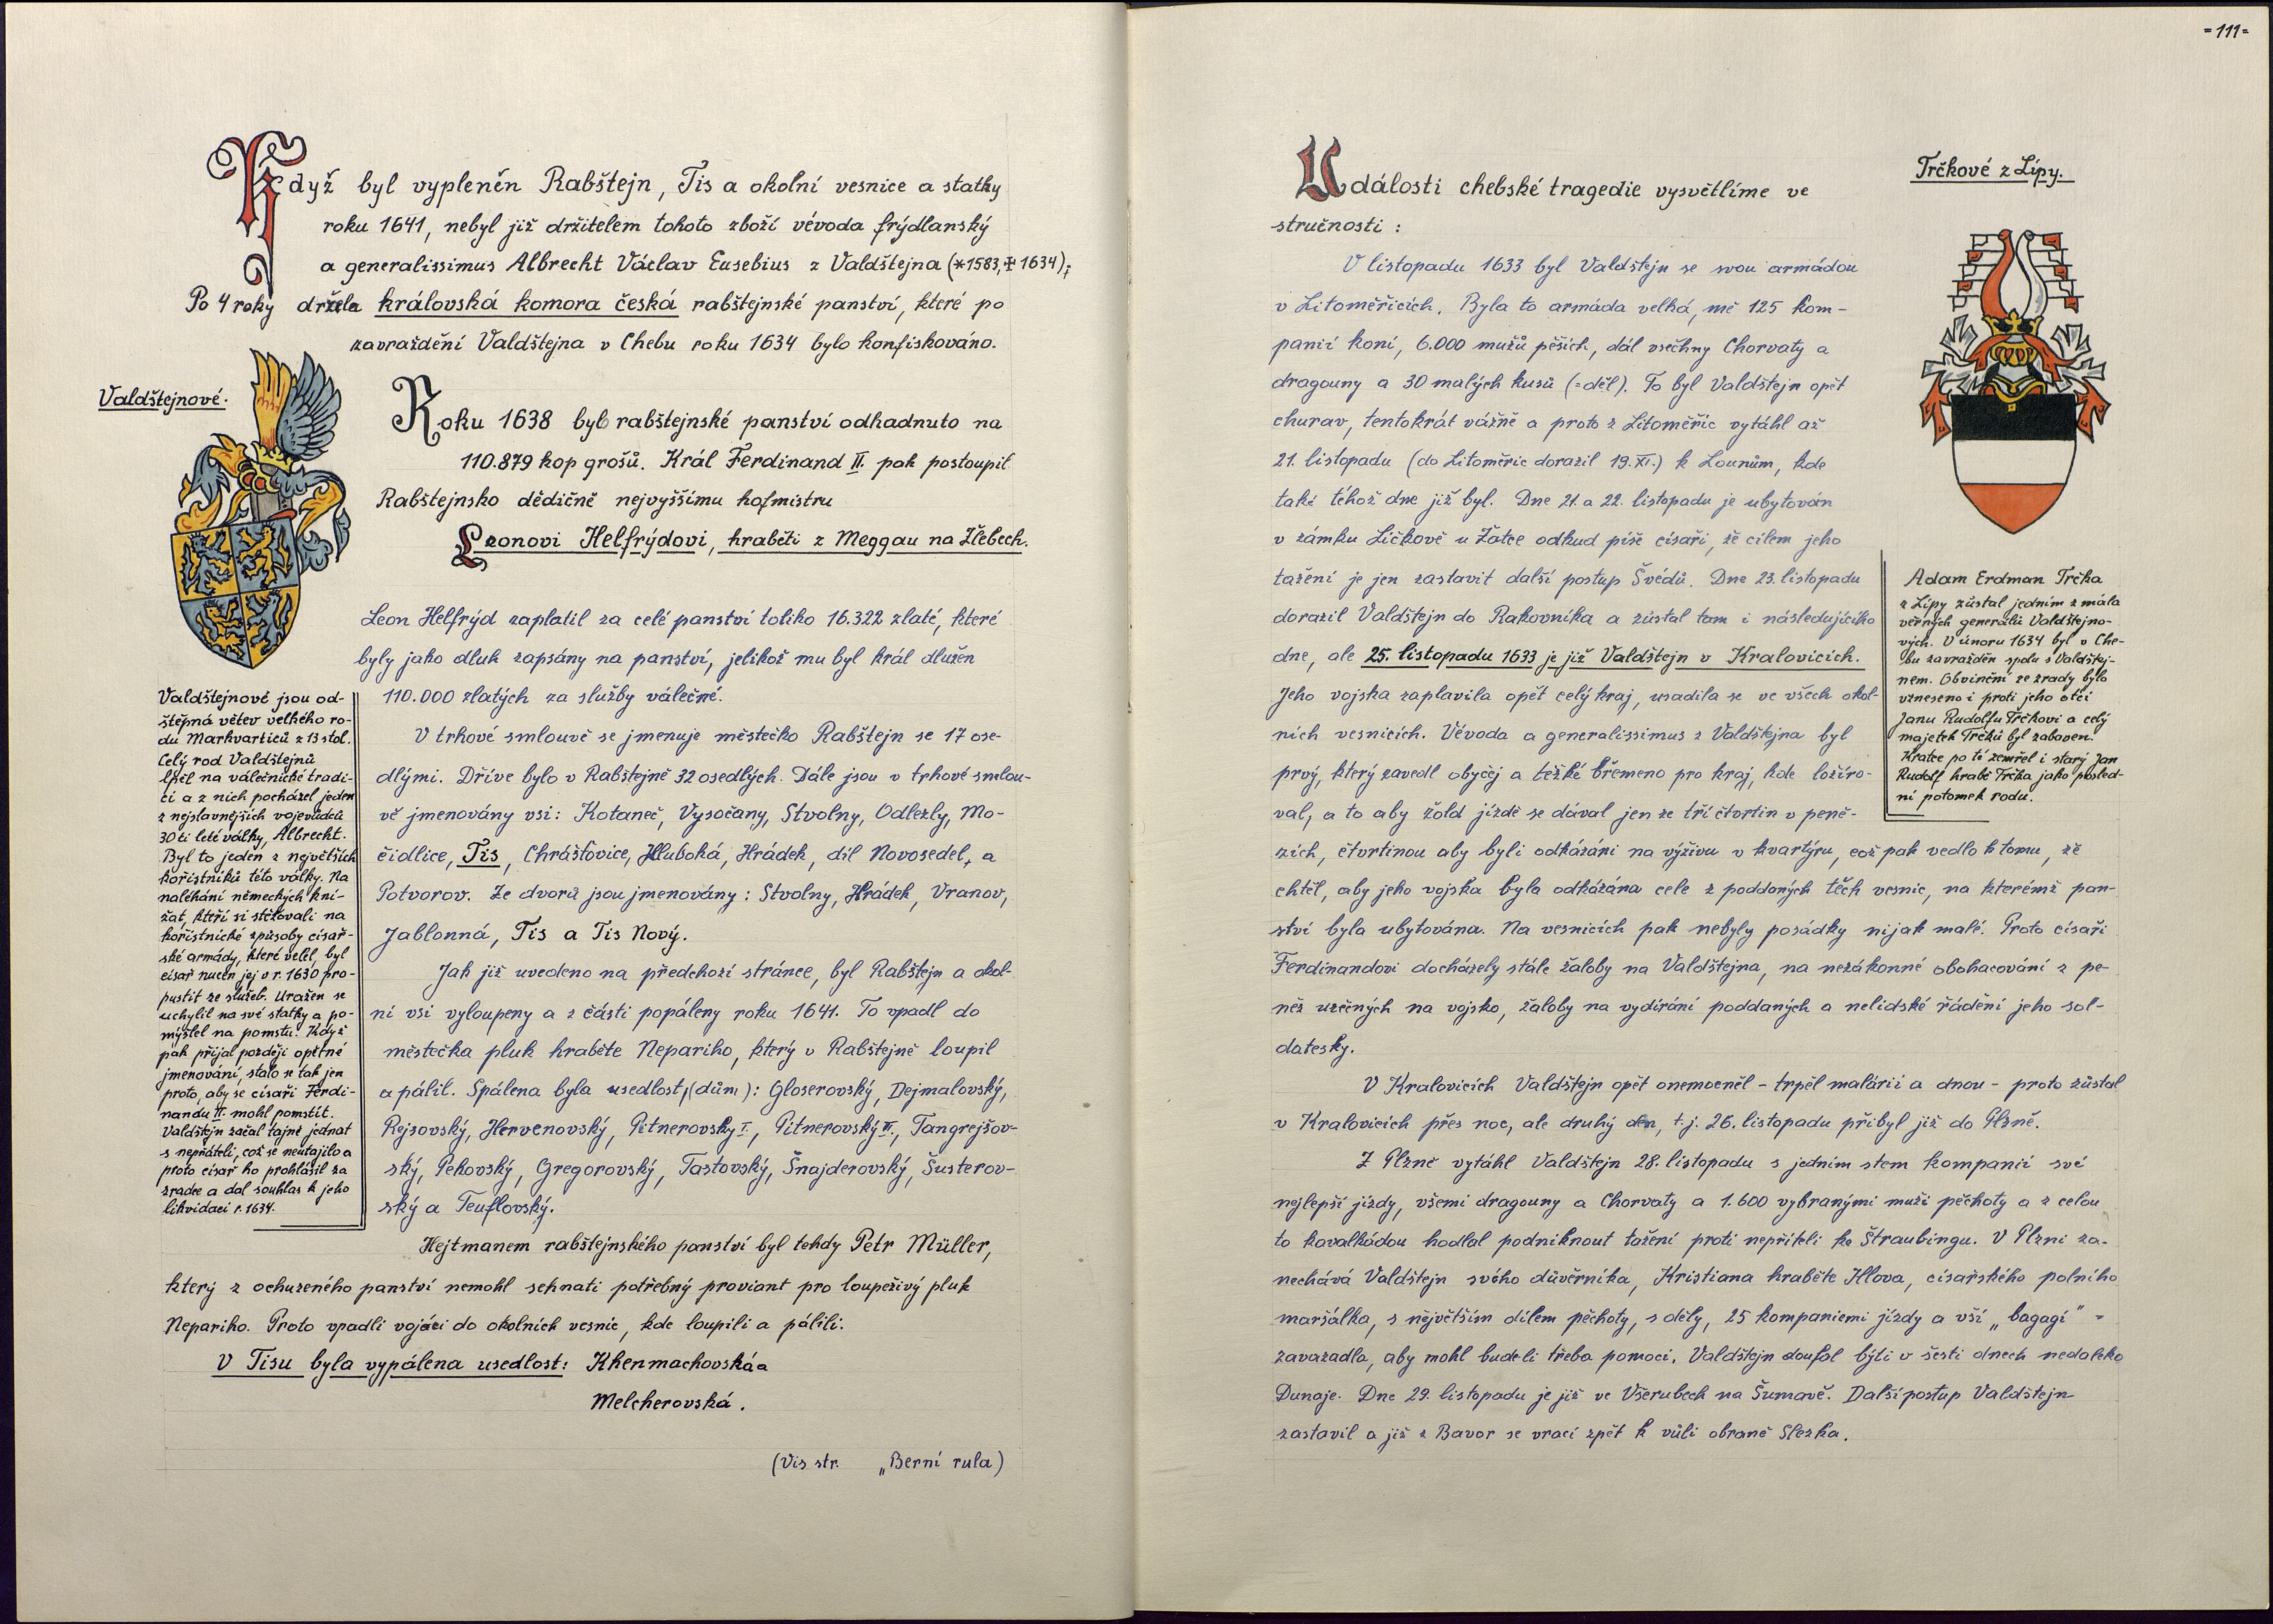 Když byl vypleněn Rabštejn, Tis a okolní vesnice a statky
roku 1641, nebyl již držitelem tohoto zboží vévoda frýdlanský
a generalissimus Albrecht Václav Eusebius z Valdštejna (*1583,✝1634);
Po 4 roky držela královská komora česká rabštejnské panství, které po
zavraždění Valdštejna v Chebu roku 1634 bylo konfiskováno.
Valdštejnové.
Roku 1638 bylo rabštejnské panství odhadnuto na
110.879 kop grošů. Král Ferdinand II. pak postoupil
Rabštejnsko dědičně nejvyššímu hofmistru
Leonovi Helfrýdovi, hraběti z Meggau na Žlebech.
Leon Helfrýd zaplatil za celé panství toliko 16.322 zlaté, které
byly jako dluh zapsány na panství, jelikož mu byl král dlužen
110.000 zlatých za služby válečné.
V trhové smlouvě se jmenuje městečko Rabštejn se 17 ose-
dlými. Dříve bylo v Rabštejně 32 osedlých. Dále jsou v trhové smlou-
vě jmenovány vsi: Kotaneč, Vysočany, Stvolny, Odlezly, Mo-
čidlice, Tis, Chrášťovice, Hluboká, Hrádek, díl Novosedel, a
Potvorov. Ze dvorů jsou jmenovány: Stvolny, Hrádek, Vranov,
Jablonná, Tis a Tis Nový.
Jak již uvedeno na předchozí stránce, byl Rabštejn a okol-
ní vsi vyloupeny a z části popáleny roku 1641. To vpadl do
městečka pluk hraběte Nepariho, který v Rabštejně loupil
a pálil. Spálena byla usedlost (dům): Gloserovský, Dejmalovský,
Rejsovský, Hervenovský, Pitnerovský I., Pitnerovský II., Tangrejšov-
ský, Pekovský, Gregorovský, Tastovský, Šnajderovský, Šusterov-
ský a Teuflovský.
Hejtmanem rabštejnského panství byl tehdy Petr Müller,
který z ochuzeného panství nemohl sehnati potřebný proviant pro loupeživý pluk
Nepariho. Proto vpadli vojáci do okolních vesnic, kde loupili a pálili.
V Tisu byla vypálena usedlost: Khenmachovská a
Melcherovská.
(Viz str. „Berní rula)
Valdštejnové jsou od-
štěpná větev velkého ro-
du Markvarticů z 13 stol.
Celý rod Valdštejnů
lpěl na válečnické tradi-
ci a z nich pocházel jeden
z nejslavnějších vojevůdců
30 ti leté války, Albrecht.
Byl to jeden z největších
kořistníků této války. Na
naléhání německých kní-
žat, kteří si stěžovali na
kořistnické způsoby císař-
ské armády, které velel, byl
císař nucen jej v r. 1630 pro-
pustit ze služeb. Uražen se
uchýlil na své statky a po-
mýšlel na pomstu. Když
pak přijal později opětné
jmenování, stalo se tak jen
proto, aby se císaři Ferdi-
nandu II. mohl pomstít.
Valdštejn začal tajně jednat
s nepřáteli, což se neutajilo a
proto císař ho prohlásil za
zrádce a dal souhlas k jeho
likvidaci r. 1634.
=111=
Události chebské tragedie vysvětlíme ve
stručnosti:
V listopadu 1633 byl Valdštejn se svou armádou
v Litoměřicích. Byla to armáda velká, mě 125 kom-
panií koní, 6.000 mužů pěších, dál všechny Chorvaty a
dragouny a 30 malých kusů (=děl). To byl Valdštejn opět
churav, tentokrát vážně a proto z Litoměřic vytáhl až
21. listopadu (do Litoměřic dorazil 19. XI.) k Lounům, kde
také téhož dne již byl. Dne 21. a 22. listopadu je ubytován
v zámku Líčkově u Žatce odkud píše císaři, že cílem jeho
tažení je jen zastavit další postup Švédů. Dne 23. listopadu
dorazil Valdštejn do Rakovníka a zůstal tam i následujícího
dne, ale 25. listopadu 1633 je již Valdštejn v Kralovicích.
Jeho vojska zaplavila opět celý kraj, usadila se ve všech okol-
ních vesnicích. Vévoda a generalissimus z Valdštejna byl
prvý, který zavedl obyčej a těžké břemeno pro kraj, kde ložíro-
val, a to aby žold jízdě se dával jen ze tří čtvrtin v peně-
zích, čtvrtinou aby byli odkázáni na výživu v kvartýru, což pak vedlo k tomu, že
chtěl, aby jeho vojska byla odkázána cele z poddaných těch vesnic, na kterémž pan-
ství byla ubytována. Na vesnicích pak nebyly posádky nijak malé. Proto císaři
Ferdinandovi docházely stále žaloby na Valdštejna, na nezákonné obohacování z pe-
něz určených na vojsko, žaloby na vydírání poddaných a nelidské řádění jeho sol-
datesky.
V Kralovicích Valdštejn opět onemocněl - trpěl malárií a dnou - proto zůstal
v Kralovicích přes noc, ale druhý den, t.j. 26. listopadu přibyl již do Plzně.
Z Plzně vytáhl Valdštejn 28. listopadu s jedním stem kompanií své
nejlepší jízdy, všemi dragouny a Chorvaty a 1.600 vybranými muži pěchoty a z celou
to kavalkádou hodlal podniknout tažení proti nepříteli ke Štraubingu. V Plzni za-
nechává Valdštejn svého důvěrníka, Kristiana hraběte Illova, císařského polního
maršálka, s největším dílem pěchoty, s děly, 25 kompaniemi jízdy a vší „bagagí" =
zavazadla, aby mohl budeli třeba pomoci. Valdštejn doufal býti v šesti dnech nedaleko
Dunaje. Dne 29. listopadu je již ve Všerubech na Šumavě. Další postup Valdštejn
zastavil a již z Bavor se vrací zpět k vůli obraně Slezka.
Trčkové z Lípy.
Adam Erdman Trčka
z Lípy zůstal jedním z mála
věrných generálů Valdštejno-
vých. V únoru 1634 byl v Che-
bu zavražděn spolu s Valdštej-
nem. Obvinění ze zrady bylo
vzneseno i proti jeho otci
Janu Rudolfu Trčkovi a celý
majetek Trčků byl zabaven.
Krátce po té zemřel i starý Jan
Rudolf hrabě Trčka jako posled-
ní potomek rodu.